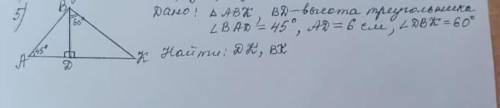 5)
B
Дано: △ABK, BD - высота треугольника
∠BAD = 45°, AD = 6 см, ∠DBK = 60°
60°
45°
A
D
K
Найти: DK, BK